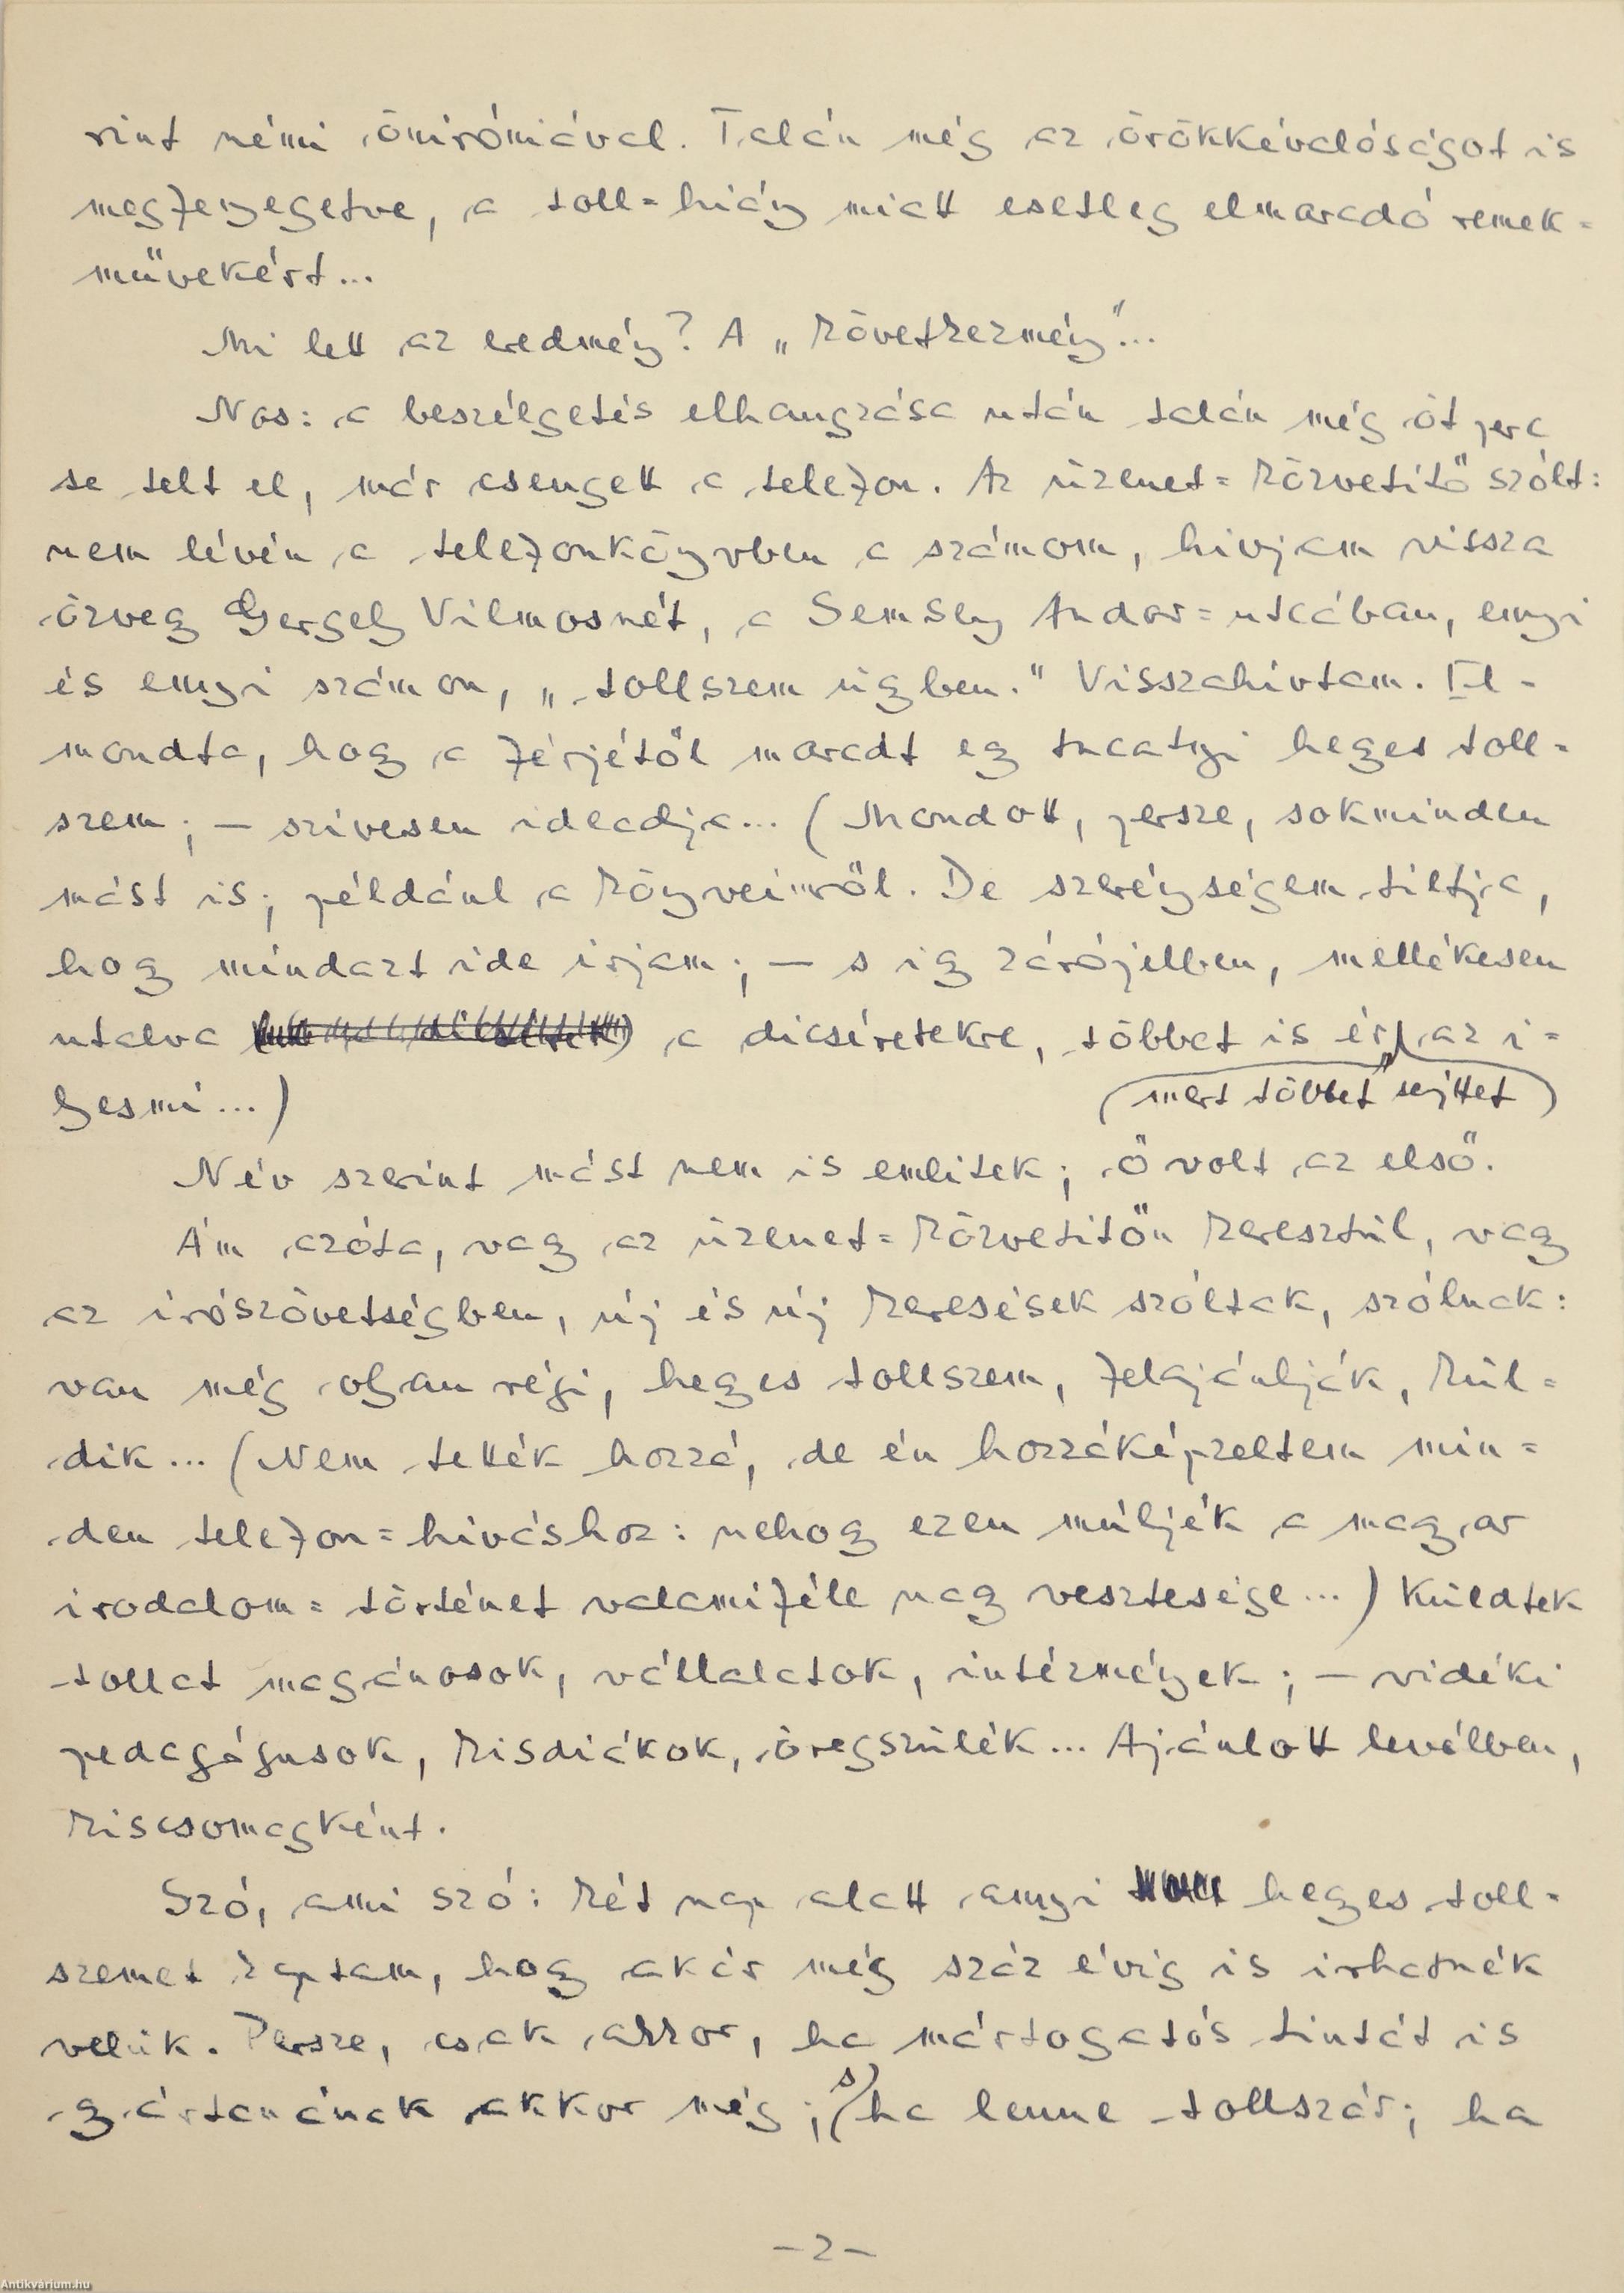 rint némi öniróniával. Talán még az örökkévalóságot is
megfenyegetve, a toll=hiány miatt esetleg elmaradó remek=
művekért...
Mi lett az eredmény? A „következmény"...
Nos: a beszélgetés elhangzása után talán még öt perc
se telt el, már csengett a telefon. Az üzenet=közvetítő szólt:
nem lévén a telefonkönyvben a számom, hívjam vissza
özvegy Gergely Vilmosnét, a Semsey Andor=utcában, ennyi
és ennyi számon, „tollszem ügyben." Visszahívtam. El=
mondta, hogy a férjétől maradt egy tucatnyi hegyes toll=
szem; – szívesen ideadja... (Mondott, persze, sokminden
mást is; például a könyveimről. De szerénységem tiltja,
hogy mindazt ide írjam; – s így zárójelben, mellékesen
utalva a dicséretekre, többet is ér, az i=
gesmi...) (mert többet sejttet)
Név szerint mást nem is emlitek; ő volt az első.
Ám azóta, vagy az üzenet=közvetitőn keresztül, vagy
az írószövetségben, új és új keresések szóltak, szólnak:
van még olyan régi, hegyes tollszem, felajánlják, kül=
dik... (Nem tették hozzá, de én hozzáképzeltem min=
den telefon=híváshoz: nehogy ezen múljék a magyar
irodalom=történet valamiféle nagy vesztesége...) Küldtek
tollat magánosok, vállalatok, intézmények; – vidéki
pedagógusok, kisdiákok, öregszülék... Ajánlott levélben,
kiscsomagként.
Szó, ami szó: két nap alatt annyi hegyes toll=
szemet kaptam, hogy akár még száz évig is irhatnék
velük. Persze, csak akkor, ha mártogatós tintát is
gyártanának akkor még; s ha lenne tollszár; ha
–2–
Antikvárium.hu